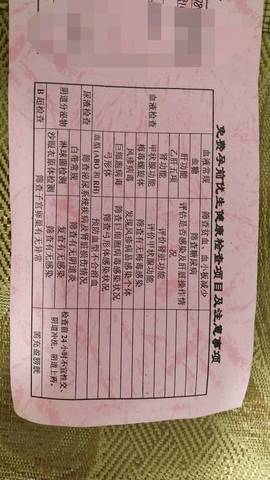 免费孕前优生健康检查项目及注意事项
血液检查
血液常规 筛查贫血、血小板减少
血糖 筛查糖尿病
肝功能
乙肝五项 评估是否感染及肝脏操作情况
肾功能 评价肾脏功能
甲状腺功能 评价甲状腺功能
梅毒螺旋体 筛查有无梅毒感染
风疹病毒 发现风疹病毒易感个体
巨细胞病毒 筛查巨细胞病毒感染状况
弓形体 筛查弓形体感染状况
血型(ABO和RH) 预防血型不合溶血
尿液检查 筛查泌尿系统疾患及肾脏损伤状况
阴道分泌物
白带常规 筛查有无阴道炎
淋球菌检测 复查有无感染
沙眼衣原体检测 筛查有无感染
检查前24小时不宜性交、
阴道冲洗、阴道上药。
B超检查 筛查子宫卵巢有无异常 需充盈膀胱